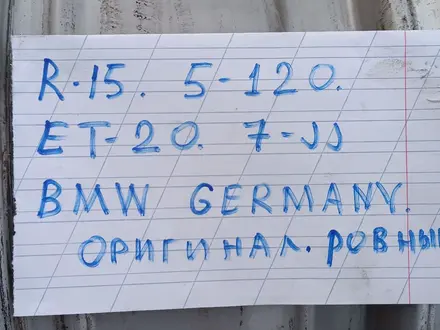 R-15. 5-120.
ET-20. 7-JJ
BMW GERMANY.
ОРИГИНАЛ. РОВНЫ